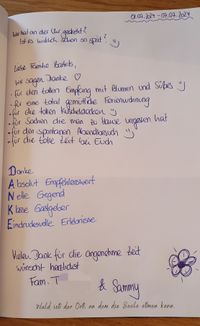 01.07.2024 - 07.07.2024
Wer hat an der Uhr gedreht?
Ist es wirklich schon so spät?
Liebe Familie Bartels,
wir sagen Danke ♡
- für den tollen Empfang mit Blumen und Süßes
- für eine total gemütliche Ferienwohnung
- für die tollen
- für Sachen die man zu Hause vergessen hat
- für den spontanen Abendbesuch
- für die tolle Zeit bei Euch
Danke
Absolut Empfehlenswert
Nette Gegend
Klasse Gastgeber
Eindrucksvolle Erlebnisse
Vielen Dank für die angenehme Zeit
wünscht herzlichst
Fam. T
& Sammy
Wald ist der Ort, an dem die Seele atmen kann.